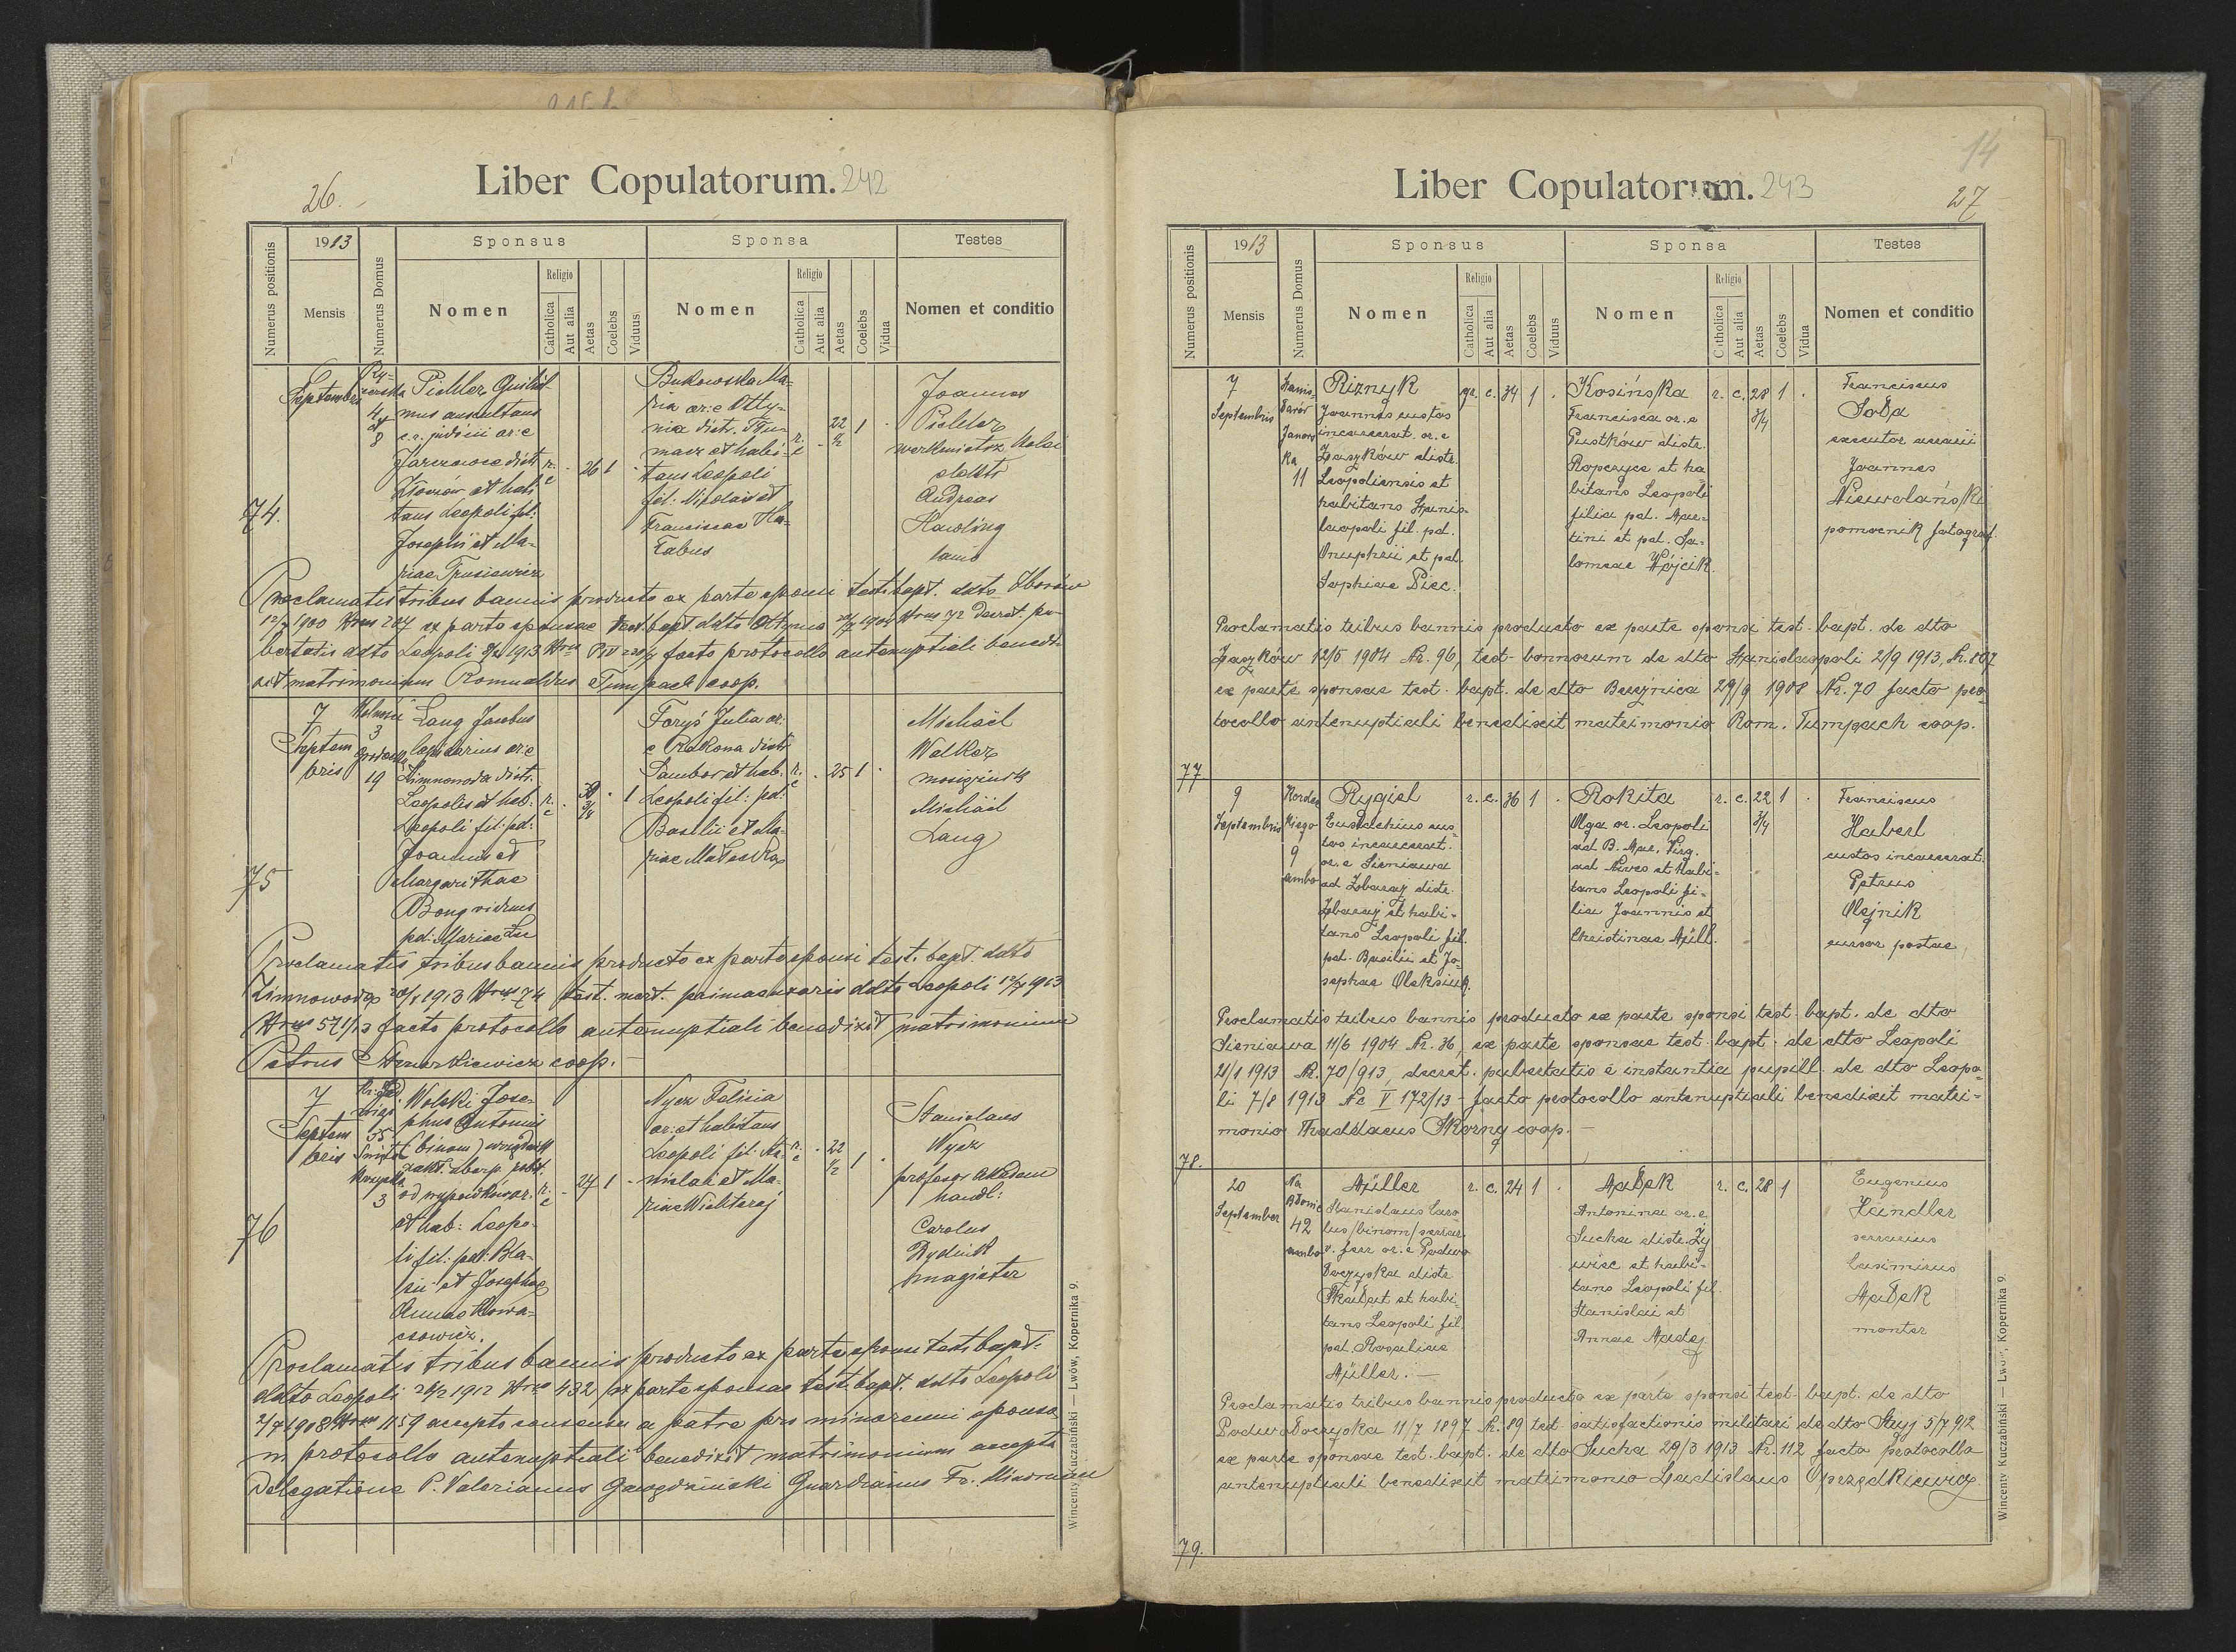 26.
Liber Copulatorum. 242
Numerus positionis
1913
Mensis
Numerus Domus
Sponsus
Nomen
Religio
Catholica
Aut alia
Aetas
Coelebs
Viduus
Sponsa
Nomen
Religio
Catholica
Aut alia
Aetas
Coelebs
Vidua
Testes
Nomen et conditio
74.
Septembris
4
8
Pichler Guilhel-
mus auscultans
c.r. judicii or: e
Jarczowce distr
Złoczów et habi
tans Leopoli fil:
Josephi et Ma-
riae Trusiewicz
r. c
26 1
Bukowska Ma-
ria or: e Otty-
nia distr. Tłu-
macz et habi-
tans Leopoli
fil. Nicolai et
Franciscae Ha-
r. c
22 1/2 1
Joannes
Pichler
werkmistrz kolei
Andreas
Hawling
Proclamatis tribus bannis producto ex parte sponsi test. bapt. ddto Zborów
1900 Nrus 207 ex parte sponsae test. bapt. ddto Ottynia 1904 Nrus 72 decret. pu-
bertatis ddto Leopoli 1913 facto protocollo antenuptiali benedi-
xit matrimonium Romualdus Tumpach coop.
75
7
Septem
bris
3
19
Lang Jacobus
or: e
Zimnowoda distr.
Leopolis et hab.
Leopoli fil: pd:
Joannis et
Margarithae
Bong viduus
pd: Mariae
r. c
3/4
1
Foryś Julia or:
e Rakowa distr
Sambor et hab.
Leopoli fil: pd:
Basilii et Ma-
riae
r. c
25 1
Michaël
Walker
mosiężnik
Michaël
Lang
Proclamatis tribus bannis producto ex parte sponsi test. bapt. ddto
Zimnowoda 1913 Nrus 74 test. mort. primae uxoris ddto Leopoli 1913
Nrus 571/13 facto protocollo antenuptiali benedixit matrimonium
Petrus coop.
76
7
Septem
bris
35
3
Wolski Jose-
phus Antonius
(binom)
zakł. ubezp. robot.
od wypadków or.
et hab: Leopo-
li fil: pd: Bla-
sii et Josephae
Annae Nowa-
r. c
24 1
Nycz Felicia
or: et habitans
Leopoli fil: Sta-
nislai et Ma-
riae
r. c
22 1/2 1
Stanislaus
Nycz
profesor Akadem
handl:
Carolus
magister
Proclamatis tribus bannis producto ex parte sponsi test. bapt.
ddto Leopoli 1912 Nrus 432 ex parte sponsae test. bapt. ddto Leopoli
1908 Nrus 1159 accepto consensu a patre pro minorenni sponsa
in protocollo antenuptiali benedixit matrimonium accepta
delegatione P. Valerianus Gwoździński Guardianus Fr. Minorum
Wincenty Kuczabiński — Lwów, Kopernika 9.
14
27
Liber Copulatorum. 243
Numerus positionis
1913
Mensis
Numerus Domus
Sponsus
Nomen
Religio
Catholica
Aut alia
Aetas
Coelebs
Viduus
Sponsa
Nomen
Religio
Catholica
Aut alia
Aetas
Coelebs
Vidua
Testes
Nomen et conditio
7
Septembris
Stanis-
ławów
Janows
ka
11
Riznyk
Joannes custos
incarcerat. or. e
Zaszków distr.
Leopoliensis et
habitans Stanis-
laopoli fil. pd.
Onuphrii et pd.
Sophiae Piec.
gr. c. 34 1 .
Kosińska
Francisca or. e
Pustków distr.
Ropczyce et ha
bitans Leopoli
filia pd. Mar-
tini et pd. Sa-
lomeae Wójcik.
r. c. 28 3/4 1 .
Franciscus
Soła
executor aerarii
Joannes
Niewolański
pomocnik fotograf.
Proclamatis tribus bannis producto ex parte sponsi test. bapt. de dto
Zaszków 12/5 1904 Nr. 96, test. bannorum de dto Stanislaopoli 2/9 1913, Nr. 807
ex parte sponsae test. bapt. de dto Brzeźnica 29/9 1908 Nr. 70 facto pro
tocollo antenuptiali benedixit matrimonio Rom. Tumpach coop.
77
9
Septembris
Kordec
kiego
9
ambo
Rygiel
Eustachius cus-
tos incarcerat.
or. e Sieniawa
ad Zbaraż distr.
Zbaraż et habi-
tans Leopoli fil.
pd. Basilii et Jo-
sephae Oleksiuk.
r. c. 36 1 .
Rokita
Olga or. Leopoli
ad B. Mar. Virg.
ad Nives et habi-
tans Leopoli fi-
lia Joannis et
Christinae Müll.
r. c. 22 3/4 1 .
Franciscus
Haberl
custos incarcerat.
Petrus
Olejnik
cursor postae
Proclamatis tribus bannis producto ex parte sponsi test. bapt. de dto
Sieniawa 11/6 1904 Nr. 36, ex parte sponsae test. bapt. de dto Leopoli
21/1 1913 Nr. 70/913, decret. pubertatis e instantia pupill. de dto Leopo-
li 7/8 1913 Nc V 172/13 - facto protocollo antenuptiali benedixit matri-
monio Thaddaeus Skorny coop. —
78.
20
September
Na
Błonie
42
ambo
Müller
Stanislaus Caro
lus /binom/ serrar.
v. ferr or. e Podwo
łoczyska distr
Skałat et habi-
tans Leopoli fil.
pd. Rosaliae
Müller. —
r. c. 24 1 .
Małek
Antonina or. e
Sucha distr. Ży
wiec et habi-
tans Leopoli fil.
Stanislai et
Annae Madej.
r. c. 28 1
Eugenius
Händler
serrarius
Casimirus
Małek
monter
Proclamatis tribus bannis producto ex parte sponsi test. bapt. de dto
Podwołoczyska 11/7 1897 Nr. 89 test satisfactionis militari de dto Stryj 5/7 912
ex parte sponsae test. bapt. de dto Sucha 29/3 1913 Nr. 112 facto protocollo
antenuptiali benedixit matrimonio Ladislaus Oprzędkiewicz.
79.
Wincenty Kuczabiński — Lwów, Kopernika 9.